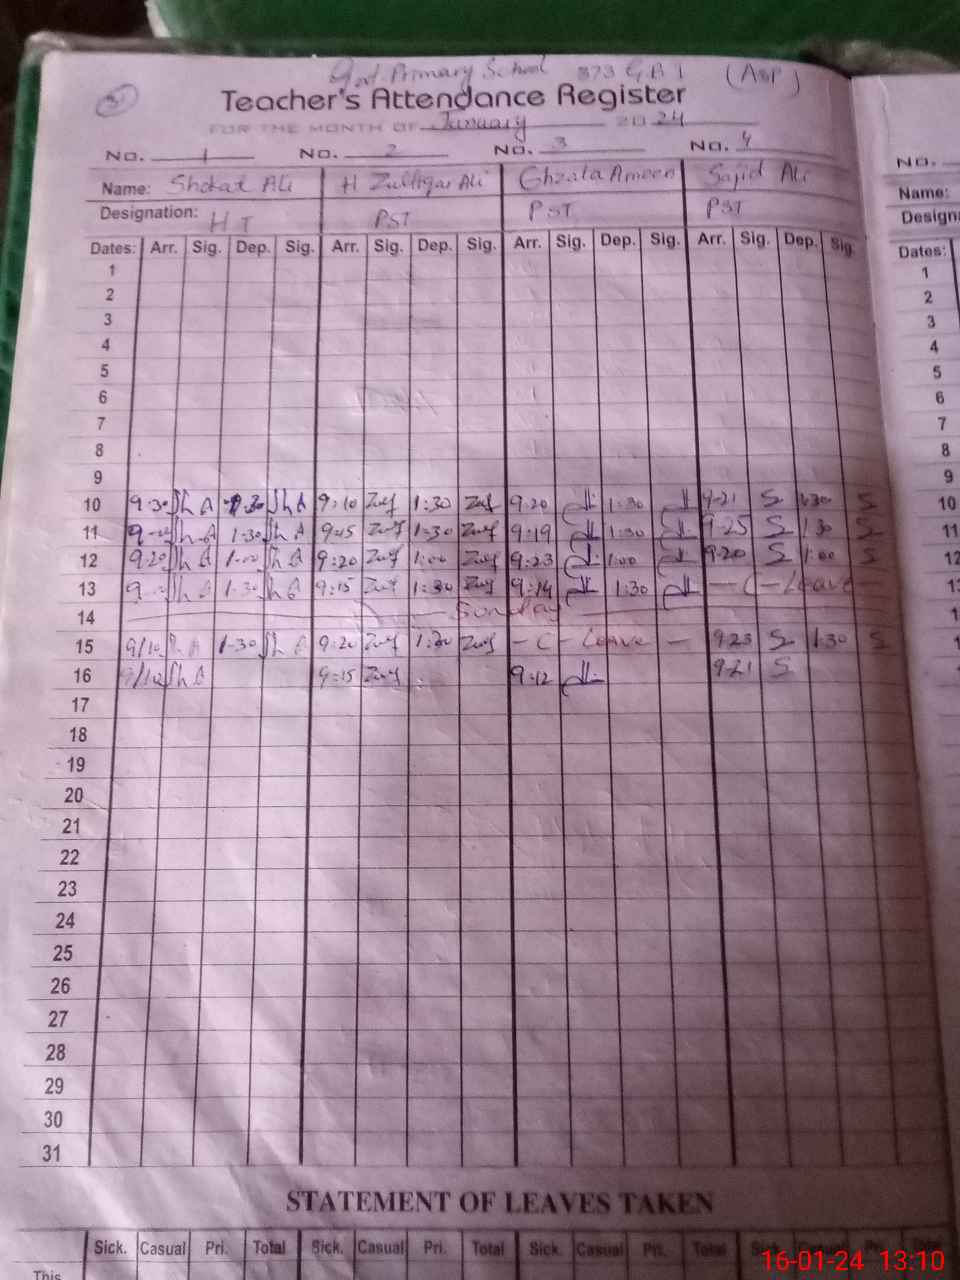 Govt. Primary School 373 G.B 1 (ASP)
Teacher's Attendance Register
FOR THE MONTH OF January 2024
No. 1 No. 2 No. 3 No. 4 No.
Name: Shokat Ali H Zulfiqar Ali Ghzala Ameen Sajid Ali Name:
Designation: H T PST PST PST
Dates: Arr. Sig. Dep. Sig. Arr. Sig. Dep. Sig. Arr. Sig. Dep. Sig. Arr. Sig. Dep. Sig. Dates:
1 1
2 2
3 3
4 4
5 5
6 6
7 7
8 8
9 9
10 9-30 Sh A 1-30 Sh A 9:10 Zulf 1:30 Zulf 9:20 1:30 9-21 S 1:30 S 10
11 Sh A 1-30 Sh A 9:15 Zulf 1:30 Zulf 9:19 1:30 9-25 S 1:30 S 11
12 9-20 Sh A 1-00 Sh A 9:20 Zulf 1:00 Zulf 9:23 1:00 9-20 S 1:00 S 12
13 Sh A 1-30 Sh A 9:15 Zulf 1:30 Zulf 9:14 1:30 - C - Leave -
14 Sunday
15 9/10 Sh A 1-30 Sh A 9:20 Zulf 1:30 Zulf - C - Leave - 9-23 S 1:30 S
16 9/10 Sh A 9:15 Zulf 9:12 9-21 S
17
18
19
20
21
22
23
24
25
26
27
28
29
30
31
STATEMENT OF LEAVES TAKEN
Sick. Casual Pri. Total Sick. Casual Pri. Total Sick. Casual Pri. Total Sick.
This
16-01-24 13:10